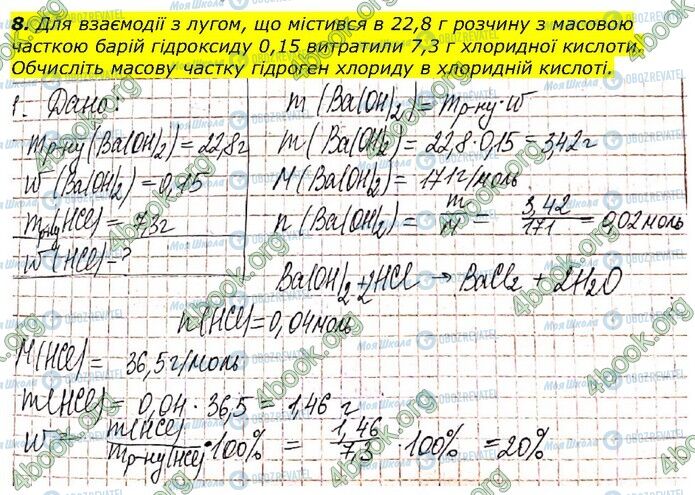 8. Для взаємодії з лугом, що містився в 22,8 г розчину з масовою
часткою барій гідроксиду 0,15 витратили 7,3 г хлоридної кислоти.
Обчисліть масову частку гідроген хлориду в хлоридній кислоті.
1. Дано:
mр-ну(Ba(OH)2)=22,8г
w(Ba(OH)2)=0,15
mр-ну(HCl)=7,3г
w(HCl)-?
m(Ba(OH)2)=mр-ну·w
m(Ba(OH)2)=22,8·0,15=3,42г
M(Ba(OH)2)=171г/моль
n(Ba(OH)2)=m/M=3,42/171=0,02моль
Ba(OH)2+2HCl→BaCl2+2H2O
n(HCl)=0,04моль
M(HCl)=36,5г/моль
m(HCl)=0,04·36,5=1,46г
w=m(HCl)/mр-ну(HCl)·100%=1,46/7,3·100%=20%
4book.org
Моя Школа
OBOZREVATEL